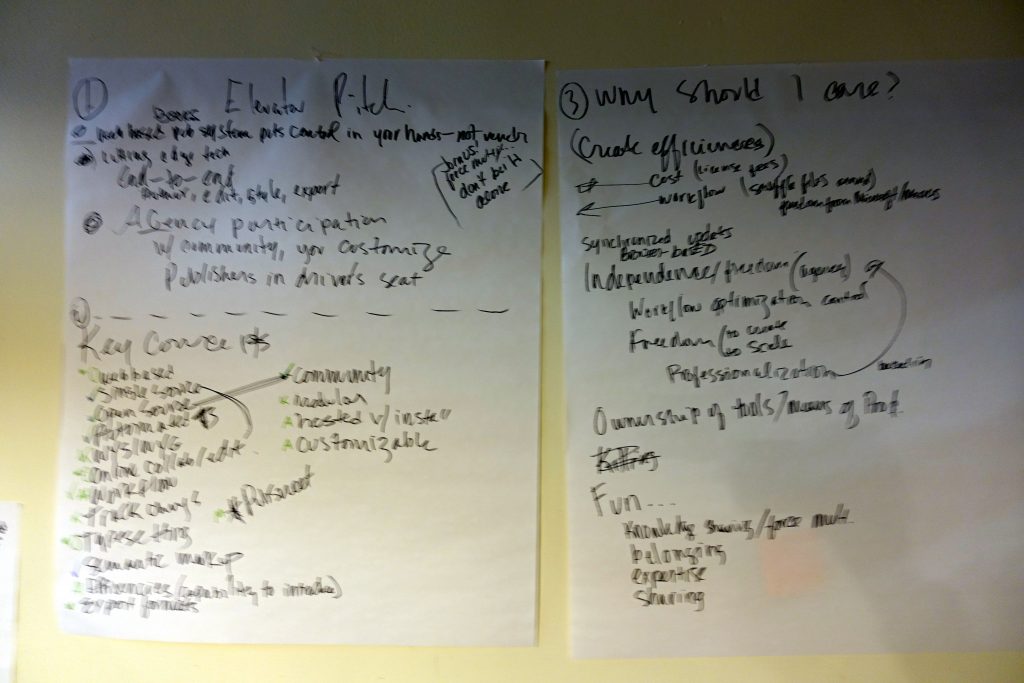 ①
Elevator Pitch.
Books
web based pub system puts control in your hands - not vendr
cutting edge tech
End-to-end
edit, style, export
bonus!
force multip...
don't do it
alone
Agency participation
w/ community, you customize
Publishers in drivers seat
2
Key Concepts
web based
Single source
Open Source
WYSIWYG
Online collab/edit
Workflow
Track change
Typesetting
Semmatic markup
Efficiencies (capabilities to introduce)
Export formats
Community
Modular
hosted v/ install
Customizable
③ Why should I care?
(Create efficiencies)
Cost (license fees)
Workflow (shuffle files around)
freedom from Microsoft/
Synchronized updates
Browser-based
Independence/freedom (agency)
Workflow optimization control
Freedom (to create
to scale
Professionalization
Ownership of tools/means of Prod.
Fun....
Knowledge sharing/force mult.
belonging
expertise
sharing